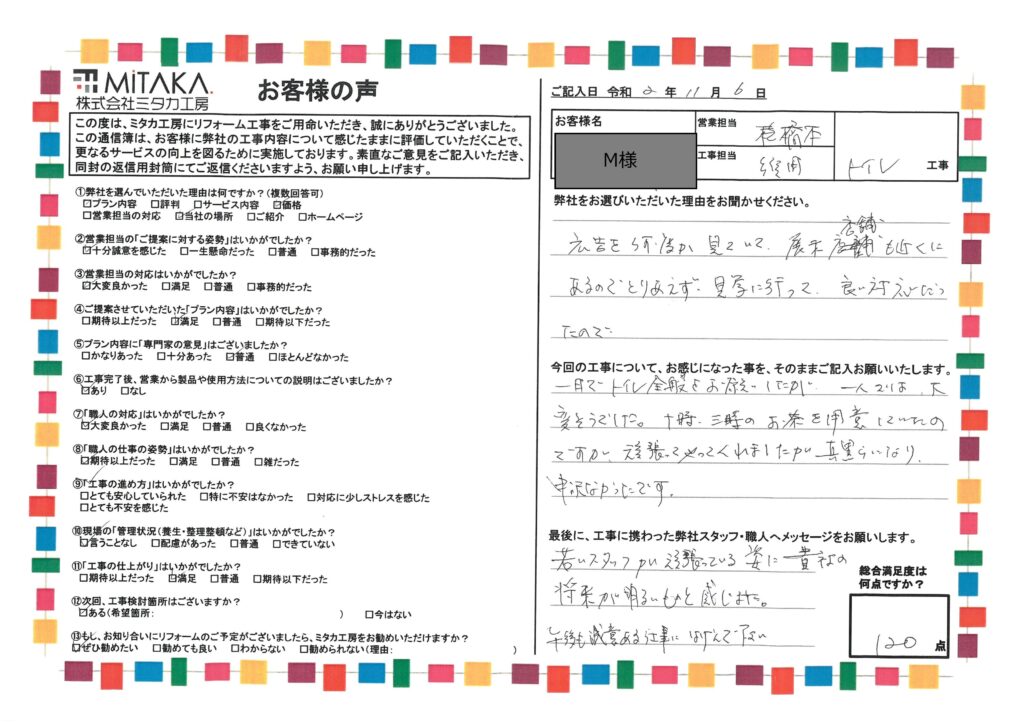 MiTAKA.
株式会社ミタカ工房
お客様の声
この度は、ミタカ工房にリフォーム工事をご用命いただき、誠にありがとうございました。
この通信簿は、お客様に弊社の工事内容について感じたままに評価していただくことで、
更なるサービスの向上を図るために実施しております。素直なご意見をご記入いただき、
同封の返信用封筒にてご返信くださいますよう、お願い申し上げます。
①弊社を選んでいただいた理由は何ですか？(複数回答可)
☑プラン内容 □評判 □サービス内容 ☑価格
□営業担当の対応 ☑当社の場所 □ご紹介 □ホームページ
②営業担当の「ご提案に対する姿勢」はいかがでしたか？
☑十分誠意を感じた □一生懸命だった □普通 □事務的だった
③営業担当の対応はいかがでしたか？
☑大変良かった □満足 □普通 □事務的だった
④ご提案させていただいた「プラン内容」はいかがでしたか？
□期待以上だった ☑満足 □普通 □期待以下だった
⑤プラン内容に「専門家の意見」はございましたか？
□かなりあった □十分あった ☑普通 □ほとんどなかった
⑥工事完了後、営業から製品や使用方法についての説明はございましたか？
☑あり □なし
⑦「職人の対応」はいかがでしたか？
☑大変良かった □満足 □普通 □良くなかった
⑧「職人の仕事の姿勢」はいかがでしたか？
☑期待以上だった □満足 □普通 □雑だった
⑨「工事の進め方」はいかがでしたか？
□とても安心していられた □特に不安はなかった □対応に少しストレスを感じた
□とても不安を感じた
⑩現場の「管理状況(養生・整理整頓など)」はいかがでしたか？
☑言うことなし □配慮があった □普通 □できていない
⑪「工事の仕上がり」はいかがでしたか？
□期待以上だった ☑満足 □普通 □期待以下だった
⑫次回、工事検討箇所はございますか？
☑ある(希望箇所: ) □今はない
⑬もし、お知り合いにリフォームのご予定がございましたら、ミタカ工房をお勧めいただけますか？
☑ぜひ勧めたい □勧めても良い □わからない □勧められない(理由: )
ご記入日 令和 2 年 11 月 6 日
お客様名
M様
営業担当
工事担当
トイレ 工事
弊社をお選びいただいた理由をお聞かせください。
店舗
広告を何度か見ていて、展示店舗も近くに
あるのでとりあえず見学に行って、良い対応だっ
たので
今回の工事について、お感じになった事を、そのままご記入お願いいたします。
一日でトイレ全般をお願いしたが、一人では、大
変そうでした。十時、三時のお茶を用意していたの
ですが、頑張ってやってくれましたが真黒らいなり、
申訳なかったです。
最後に、工事に携わった弊社スタッフ・職人へメッセージをお願いします。
若いスタッフが頑張っている姿に貴社の
将来が明るいものと感じました。
今後も誠意ある仕事にはげんで下さい
総合満足度は
何点ですか？
120 点